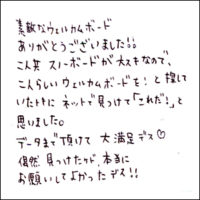 素敵なウェルカムボード
ありがとうございました!!
二人共 スノーボードが大スキなので、
こんならしいウェルカムボードを!と探して
いたトキに ネットで見つけて「これだ!」と
思いました。
データまで頂けて 大満足デス♡
偶然 見つけたケド、本当に
お願いしてよかったデス!!